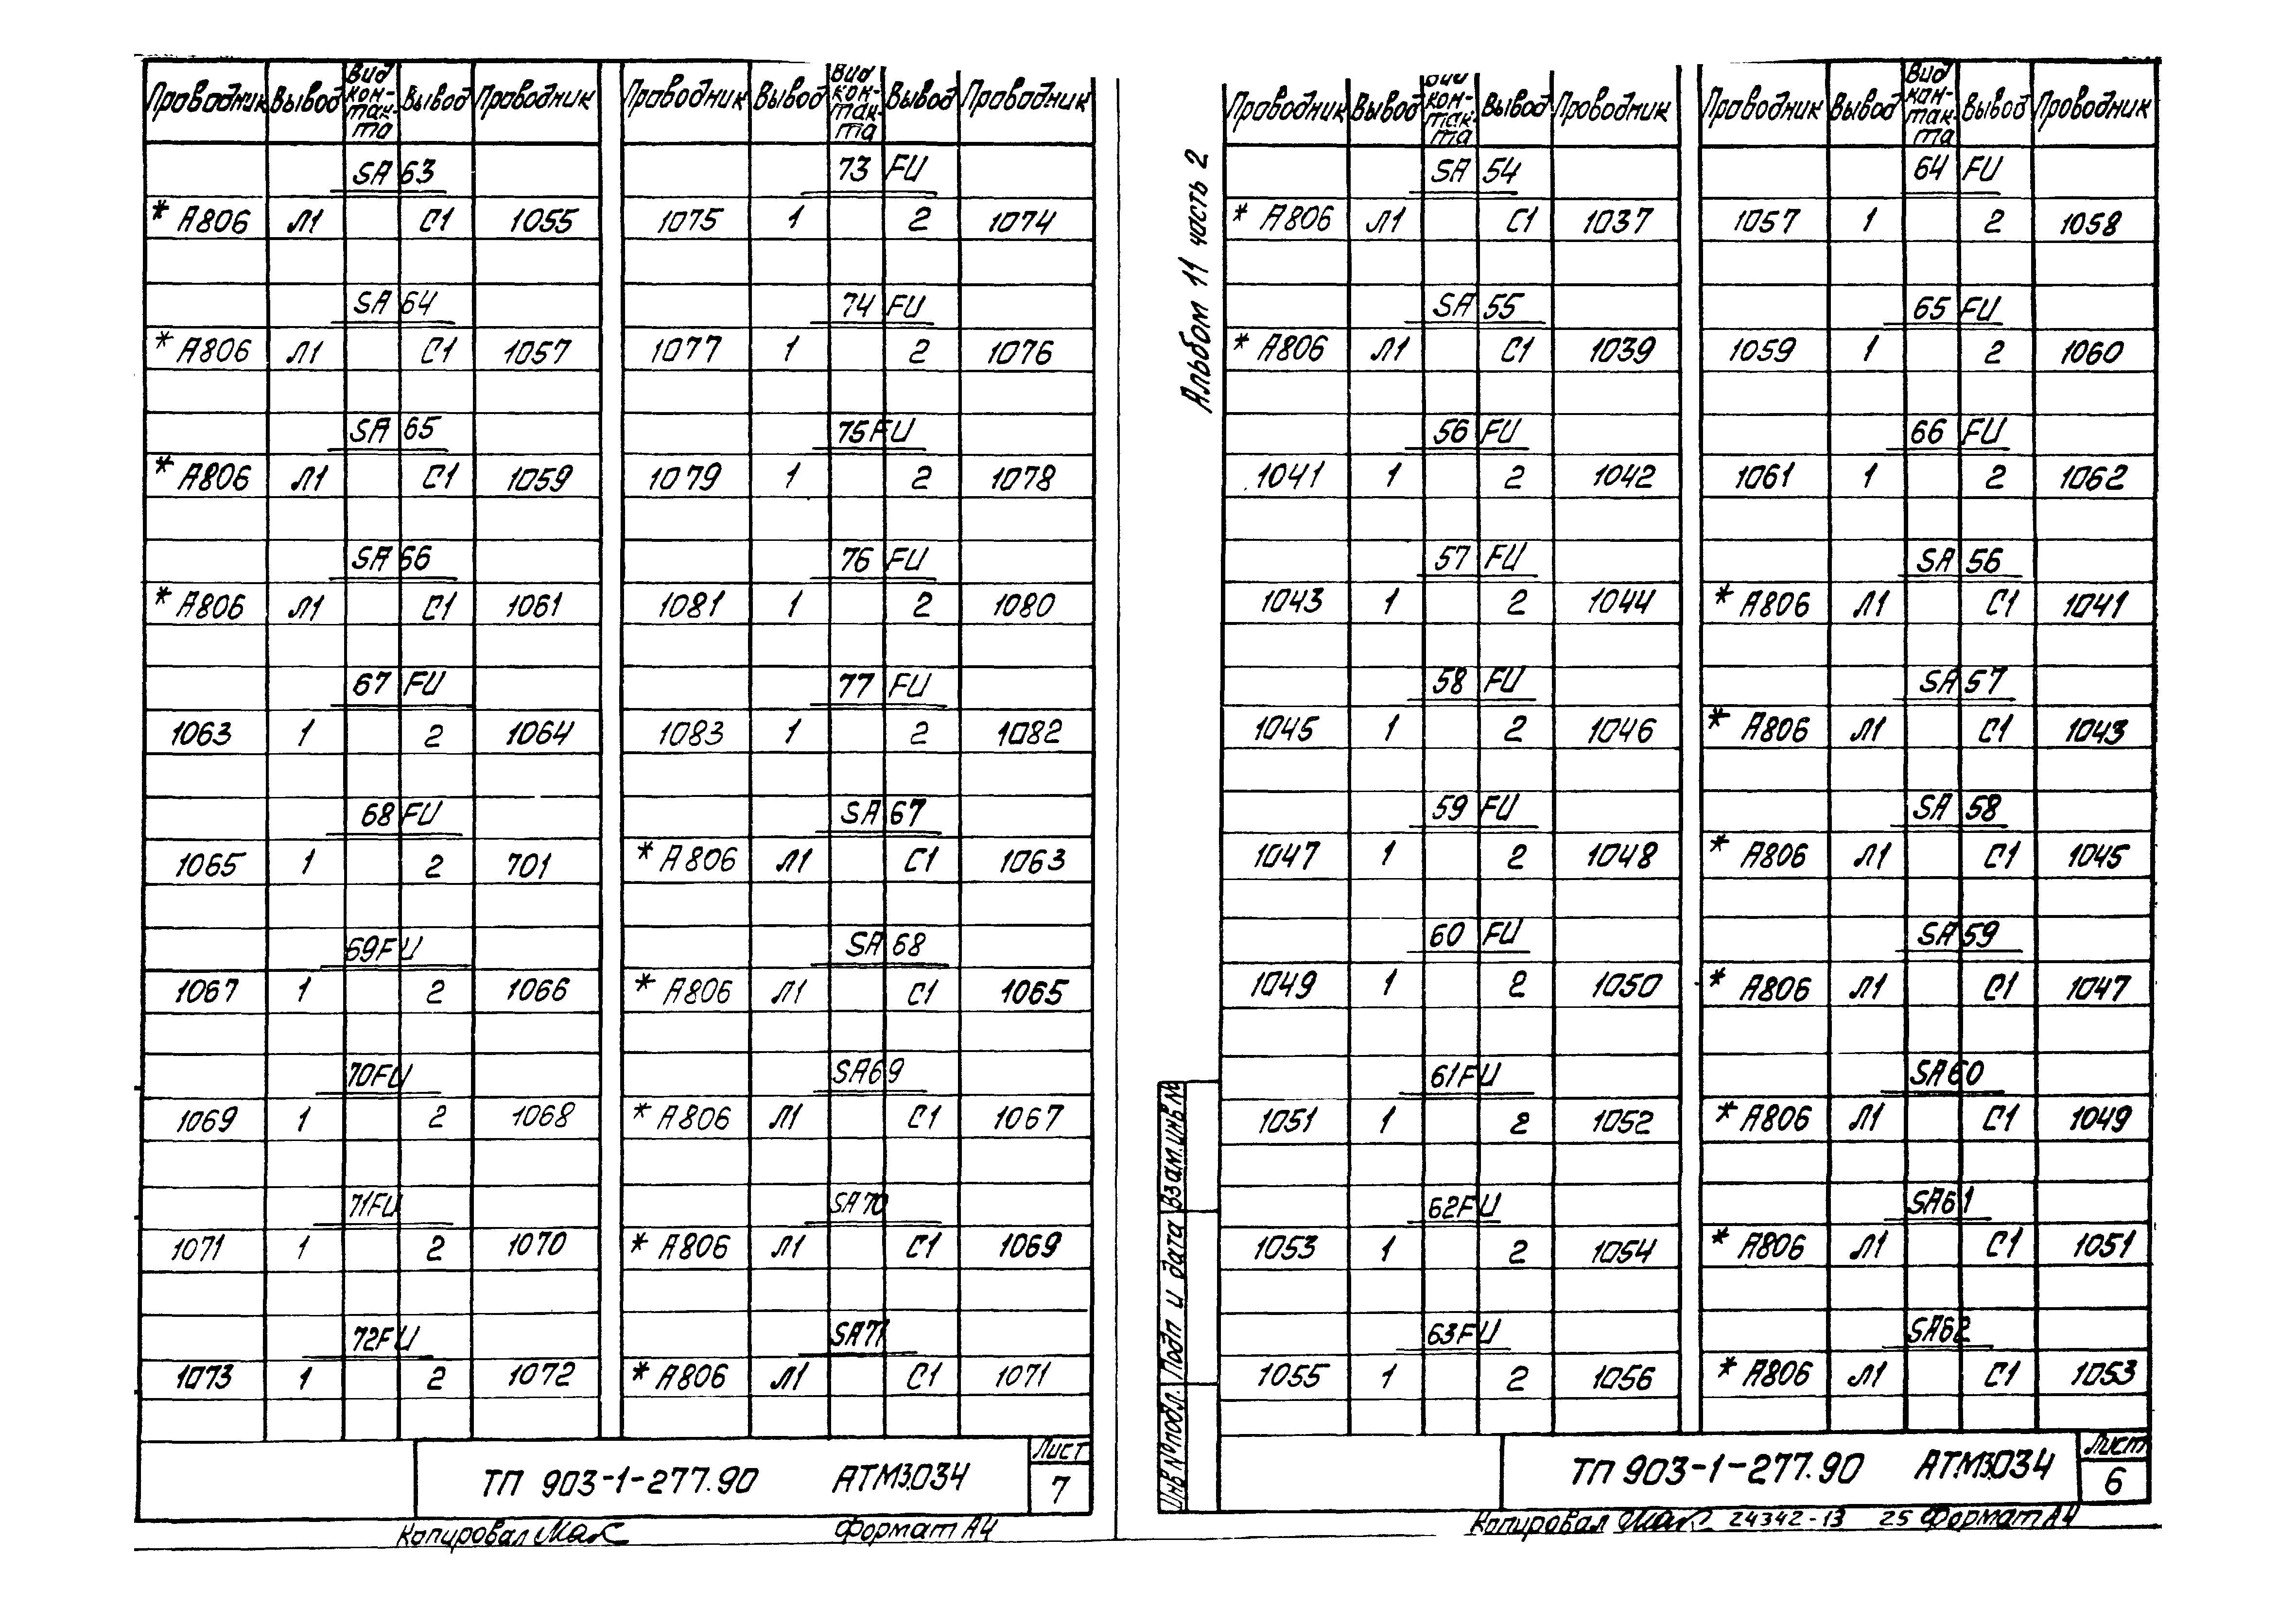 Проводник Вывод Вид кон-так-та Вывод Проводник
SA 63
* А806 Л1 С1 1055
SA 64
* А806 Л1 С1 1057
SA 65
* А806 Л1 С1 1059
SA 66
* А806 Л1 С1 1061
67 FU
1063 1 2 1064
68 FU
1065 1 2 701
69FU
1067 1 2 1066
70FU
1069 1 2 1068
71FU
1071 1 2 1070
72FU
1073 1 2 1072
Проводник Вывод Вид кон-так-та Вывод Проводник
73 FU
1075 1 2 1074
74 FU
1077 1 2 1076
75FU
1079 1 2 1078
76 FU
1081 1 2 1080
77 FU
1083 1 2 1082
SA 67
* А806 Л1 С1 1063
SA 68
* А806 Л1 С1 1065
SA69
* А806 Л1 С1 1067
SA70
* А806 Л1 С1 1069
SA71
* А806 Л1 С1 1071
ТП 903-1-277.90 АТМ3.034
Лист
7
Копировал Формат А4
Альбом 11 часть 2
Проводник Вывод Вид кон-так-та Вывод Проводник
SA 54
* А806 Л1 С1 1037
SA 55
* А806 Л1 С1 1039
56 FU
1041 1 2 1042
57 FU
1043 1 2 1044
58 FU
1045 1 2 1046
59 FU
1047 1 2 1048
60 FU
1049 1 2 1050
61FU
1051 1 2 1052
62FU
1053 1 2 1054
63FU
1055 1 2 1056
Проводник Вывод Вид кон-так-та Вывод Проводник
64 FU
1057 1 2 1058
65 FU
1059 1 2 1060
66 FU
1061 1 2 1062
SA 56
* А806 Л1 С1 1041
SA 57
* А806 Л1 С1 1043
SA 58
* А806 Л1 С1 1045
SA 59
* А806 Л1 С1 1047
SA60
* А806 Л1 С1 1049
SA61
* А806 Л1 С1 1051
SA62
* А806 Л1 С1 1053
Инв № подл. Подп и дата Взам.инв №
ТП 903-1-277.90 АТМ3.034
Лист
6
Копировал 24342-13 25 Формат А4